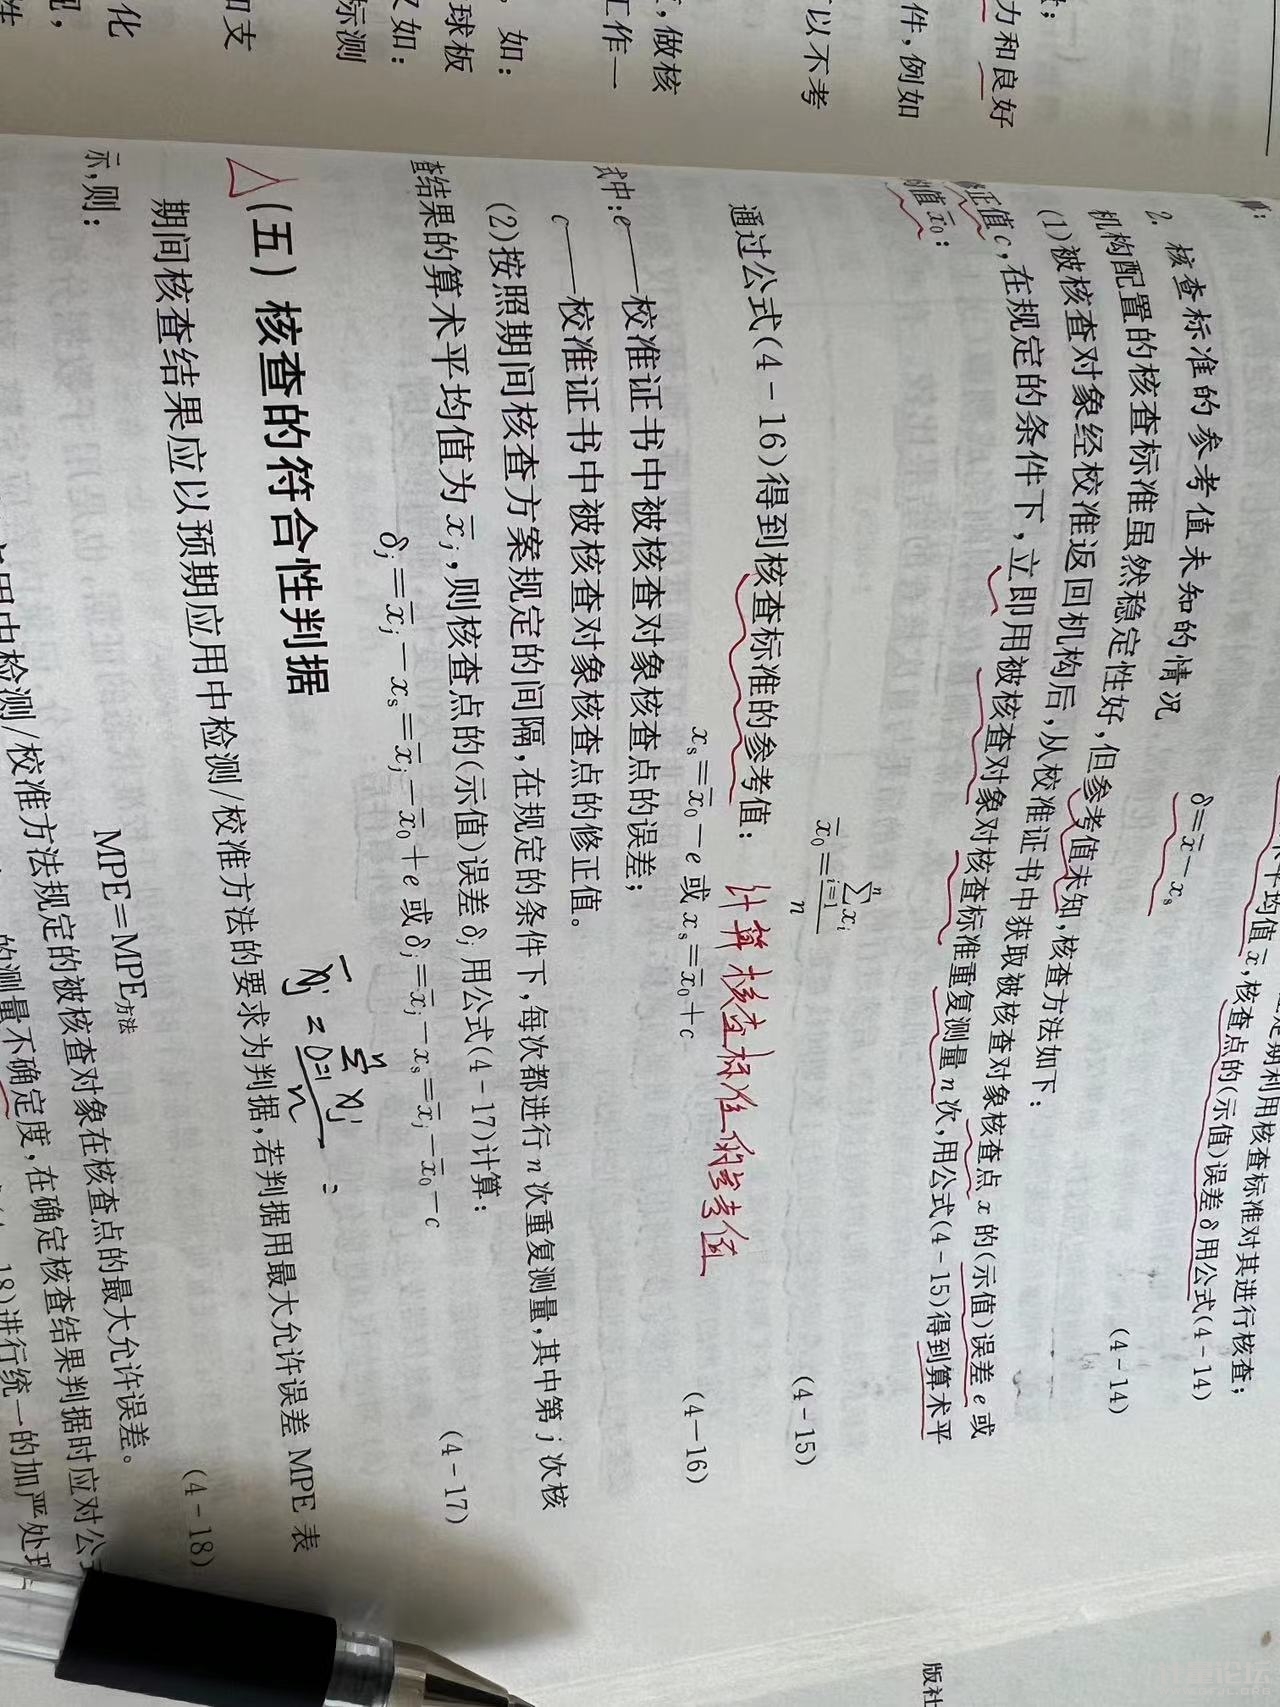 力和良好
件,例如
以不考
,做核
工作一
,如:
球板
又如:
标测
和支
化
术平均值x̄,核查点的(示值)误差δ用公式(4-14)
定期利用核查标准对其进行核查;
δ=x̄-xₛ
(4-14)
2. 核查标准的参考值未知的情况
机构配置的核查标准虽然稳定性好,但参考值未知,核查方法如下:
(1)被核查对象经校准返回机构后,从校准证书中获取被核查对象核查点x的(示值)误差e或
修正值c,在规定的条件下,立即用被核查对象对核查标准重复测量n次,用公式(4-15)得到算术平
均值x̄₀:
x̄₀=∑ⁿᵢ₌₁xᵢ/n
(4-15)
通过公式(4-16)得到核查标准的参考值:
计算核查标准的参考值
xₛ=x̄₀-e或xₛ=x̄₀+c
(4-16)
式中:e——校准证书中被核查对象核查点的误差;
c——校准证书中被核查对象核查点的修正值。
(2)按照期间核查方案规定的间隔,在规定的条件下,每次都进行n次重复测量,其中第j次核
查结果的算术平均值为x̄ⱼ,则核查点的(示值)误差δⱼ用公式(4-17)计算:
δⱼ=x̄ⱼ-xₛ=x̄ⱼ-x̄₀+e或δⱼ=x̄ⱼ-xₛ=x̄ⱼ-x̄₀-c
(4-17)
(五)核查的符合性判据
期间核查结果应以预期应用中检测/校准方法的要求为判据,若判据用最大允许误差MPE表
示,则:
MPE=MPE方法
(4-18)
用中检测/校准方法规定的被核查对象在核查点的最大允许误差。
的测量不确定度,在确定核查结果判据时应对公
18)进行统一的加严处理
版社